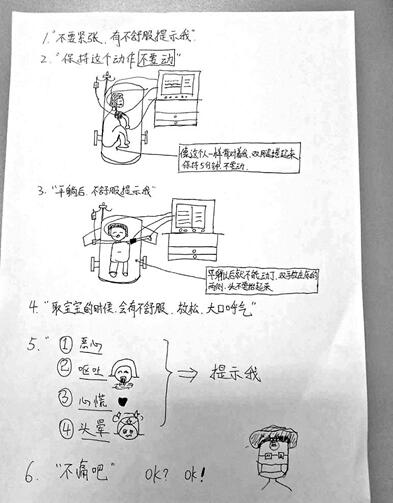 1. "不要紧张,有不舒服提示我"
2. "保持这个动作 不要动"
像这个人一样背对着我,双腿提起来,
保持5分钟,不要动.
3. "平躺后,不舒服提示我"
平躺以后就不能动了,双手放在床的
两侧,头不要抬起来.
4. "取宝宝的时候,会有不舒服,放松,大口呼气"
5. "① 恶心
② 呕吐
③ 心慌
④ 头晕
⇒ 提示我
6. "不痛吧" OK? OK!